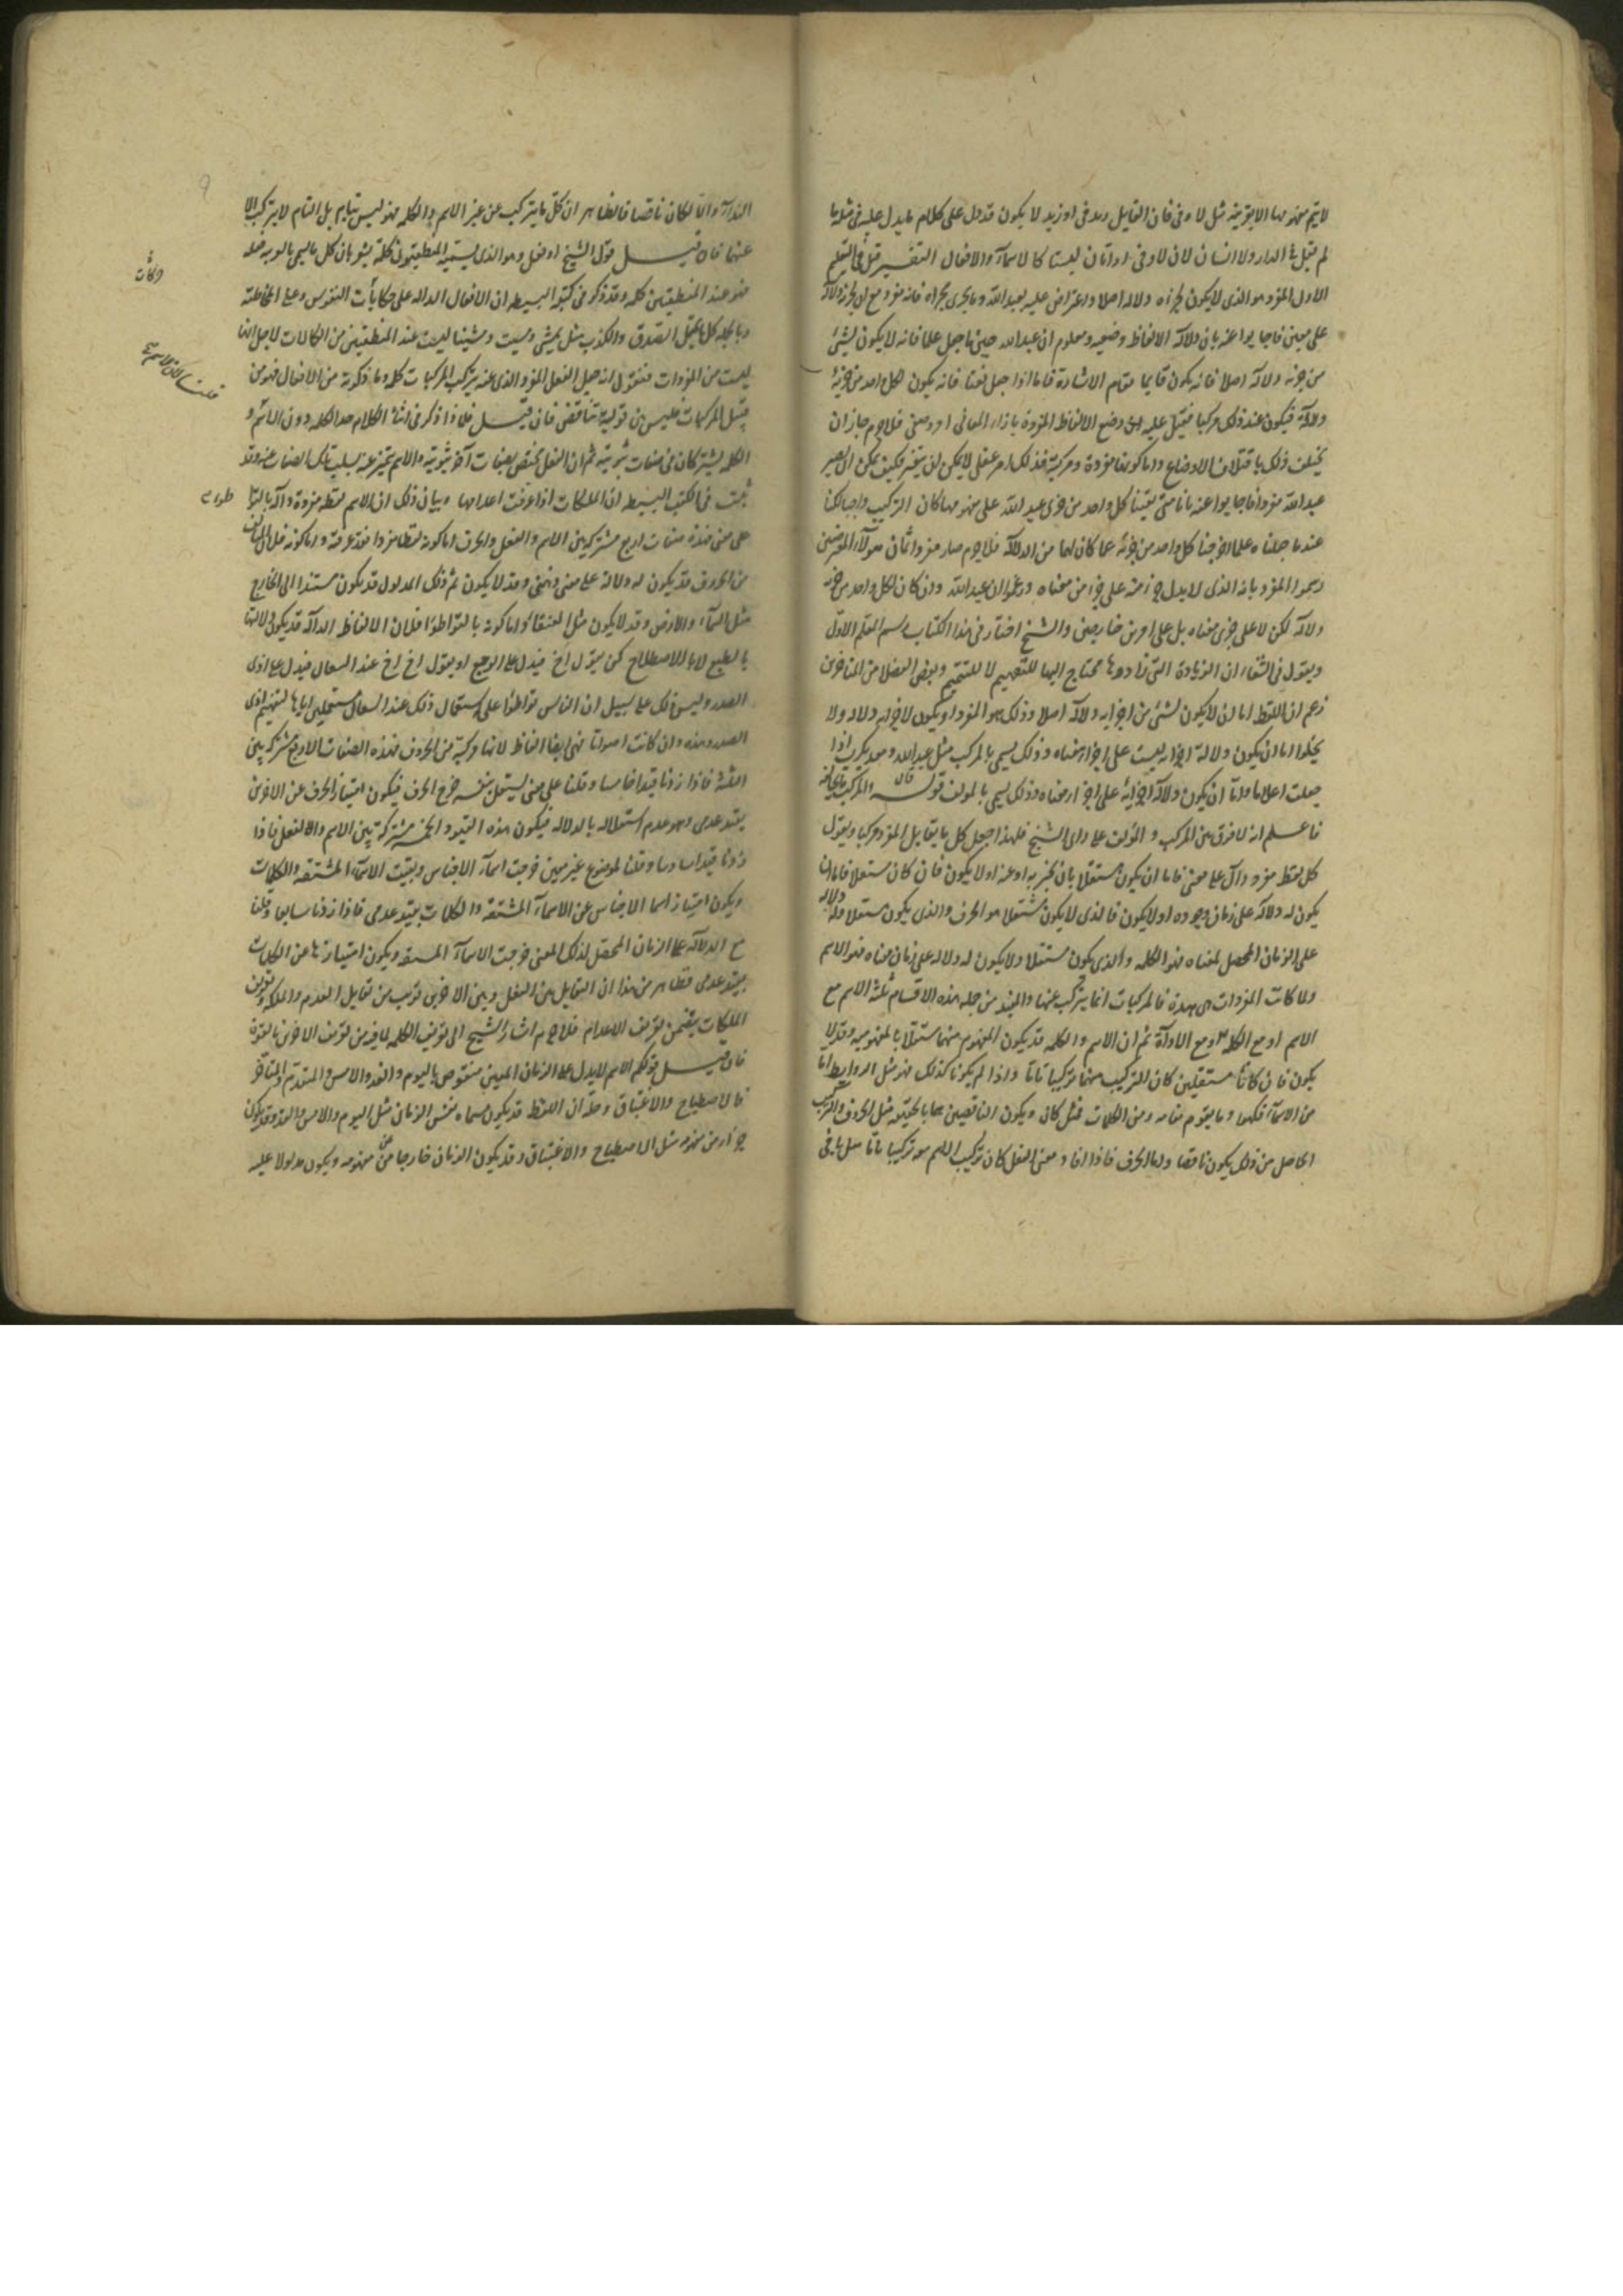 لا يتم مفهومها الا بقرينة مثل لا وفى فان القايل زيد فى او زيد لا يكون قد دل على كمال ما يدل عليه فى مثله ما
لم يقل فى الدار ولا انسان لان لا وفى اداتان ليستا كالاسمآء والافعال التفسير قيل فى التعليم
الاول المفرد هو الذى لا يكون لجزءه دلالة اصلا واعترض عليه بعبد الله وما يجرى مجراه فانه مفرد مع ان لجزئه دلالة
على معين فاجابوا عنه بان دلالة الالفاظ وضعيه ومعلوم ان عبد الله حين ما جعل علما فانه لا يكون لشئ
من جزئه دلالة اصلا فانه يكون قايما مقام الاشارة فاما اذا جعل نعتا فانه يكون لكل واحد من جزئيه
دلالة فيكون عند ذلك مركبا فقيل عليه وضع الالفاظ المفردة بازاء المعانى امر وضعى فلا جرم جاز ان
يختلف ذلك باختلاف الاوضاع واما كونها مفردة ومركبة فذلك امر عقلى لا يمكن ان يتغير فكيف يمكن ان يصير
عبد الله مفردا فاجابوا عنه بانا متى بقينا كل واحد من جزئى عبد الله على مفهومها كان التركيب واجبا لكنا
عند ما جعلناه علما اخرجنا كل واحد من جزئه عما كان لهما من الدلالة فلا جرم صار مفردا ثم ان هولآء المعترضين
رسموا المفرد بانه الذى لا يدل جزء منه على جزء من معناه وزعموا ان عبد الله وان كان لكل واحد من جزءيه
دلالة لكن لا على جزئى معناه بل على امرين خارجين والشيخ اختار فى هذا الكتاب رسم المعلم الاول
ويقول فى الشفاء ان الزيادة التى زادوها محتاج اليها للتفهيم لا للتتميم وبعض الفضلا من المتاخرين
زعم ان اللفظ اما ان لا يكون لشئ من اجزايه دلالة اصلا وذلك هو المفرد او يكون لاجزايه دلالة ولا
يخلوا اما ان يكون دلالة اجزايه ليست على اجزاء معناه وذلك يسمى بالمركب مثل عبد الله ومعديكرب اذا
جعلت اعلاما واما ان يكون دلالة اجزائه على اجزاء معناه وذلك يسمى بالمولف قوله
فاعلم انه لا فرق بين المركب و المولف على راى الشيخ فلهذا جعل كل ما يقابل المفرد مركبا ويقول
كل لفظ مفرد دال على معنى فاما ان يكون مستقلا بان يخبر به او عنه او لا يكون فان كان مستقلا فاما ان
يكون له دلالة على زمان وجوده او لا يكون فالذى لا يكون مستقلا هو الحرف والذى يكون مستقلا وله دلالة
على الزمان المحصل لمعناه فهو الكلمه والذى يكون مستقلا ولا يكون له دلالة على زمان معناه فهو الاسم
ولا كانت المفردات هى هذه فالمركبات انما يتركب عنها والمفيد من جمله هذه الاقسام ثلثة الاسم مع
الاسم او مع الكلمة او مع الاداة ثم ان الاسم والكلمه قد يكون المفهوم منهما مستقلا بالمفهوميه وقد لا
يكون فان كانا مستقلين كان التركيب منهما تركيبا تاما واذا لم يكونا كذلك فهو مثل الروابط اما
من الاسمآء فكهو وما يقوم مقامه ومن الكلمات فمثل كان ويكون الناقصين بها بالحقيقه مثل الحروف والتركيب
الحاصل من ذلك يكون ناقصا واما الحرف فاذا افاد معنى الفعل كان تركيب الاسم معه تركيبا تاما مثل يا فى
الندآء والا لكان ناقصا فالظاهر ان كل ما يتركب عن غير الاسم والكلمه فهو ليس بتام بل التام لا يتركب الا
عنهما فان قيل قول الشيخ او فعل وهو الذى يسميه المنطقيون كلمة يشعر بان كل ما يسمى بالعربية فعلا
فهو عند المنطقيين كلمه وقد ذكر فى كتبه البسيطه ان الافعال الداله على حكايات النفوس وعلى المخاطبة
وبالجمله كل ما يحتمل الصدق والكذب مثل يمشى ومشيت ومشينا ليست عند المنطقيين من الكلمات لاجل انها
ليست من المفردات فنقول انه جعل الفعل المفرد الذى عنه يتركب المركبات كلمه وما ذكرته من الافعال فهو من
قبيل المركبات فليس بين قوليه تناقض فان قيل فلماذا ذكر فى اثناء الكلام حد الكلمه دون الاسم و
الكلمه يشتركان فى صفات ثبوتيه ثم ان الفعل يختص بصفات اخر ثبوتيه والاسم يتميز عنه بسلب تلك الصفات عنه وقد
ثبت فى الكتب البسيطه ان الملكات اذا عرفت عرفت اعدامها وبيان ذلك ان الاسم لفظه مفردة دالة بالتواطؤ
على معنى فهذه صفات اربع مشتركة بين الاسم والفعل والحرف اما كونه لفظا مفردا فقد عرفته واما كونه دالا فلان المولف
من الحروف قد يكون له دلالة على معنى ذهنى وقد لا يكون ثم ذلك المدلول قد يكون مستندا الى الخارج
مثل السمآء والارض وقد لا يكون مثل العنقاء واما كونه بالتواطؤ فلان الالفاظ الدالة قد يكون دلالتها
بالطبع لا بالاصطلاح كمن يقول اخ فيدل على الوجع او يقول اخ اخ عند السعال فيدل على اذى
الصدر وليس ذلك على سبيل ان الناس تواطؤا على استعمال ذلك عند السعال مستعملين اياها لتفهيم اذى
الصدر وهذه وان كانت اصواتا فهى ايضا الفاظ لانها مركبة من الحروف فهذه الصفات الاربع مشتركة بين
الثلثة فاذا زدنا قيدا خامسا وقلنا على معنى يستقل بنفسه خرج الحرف فيكون امتياز الحرف عن الاخرين
بقيد عدمى وهو عدم استقلاله بالدلاله فيكون هذه القيود الخمسه مشتركة بين الاسم والفعل فاذا
زدنا قيدا سادسا وقلنا لموضوع غير معين خرجت اسمآء الاجناس وبقيت الاسمآء المشتقه والكلمات
ويكون امتياز اسما الاجناس عن الاسمآء المشتقه والكلمات بقيد عدمى فاذا زدنا سابعا وقلنا
مع الدلالة على الزمان المحصل لذلك المعنى خرجت الاسمآء المشتقه ويكون امتيازها عن الكلمات
بقيد عدمى فظاهر من هذا ان التقابل بين الفعل وبين الاخرين قريب من تقابل العدم والملكه وتعريف
الملكات يتضمن تعريف الاعدام فلا جرم اشار الشيخ الى تعريف الكلمه لما فيه من تعريف الاخرين بالقوة
فان قيل قولكم الاسم لا يدل على الزمان المعين منقوض باليوم والغد والامس والمتقدم والمتاخر
فالاصطباح والاغتباق وحله ان اللفظ قد يكون مسماه نفس الزمان مثل اليوم والامس والغد وقد يكون
جزءا من مفهومه مثل الاصطباح والاغتباق وقد يكون الزمان خارجا عن مفهومه ويكون مدلولا عليه